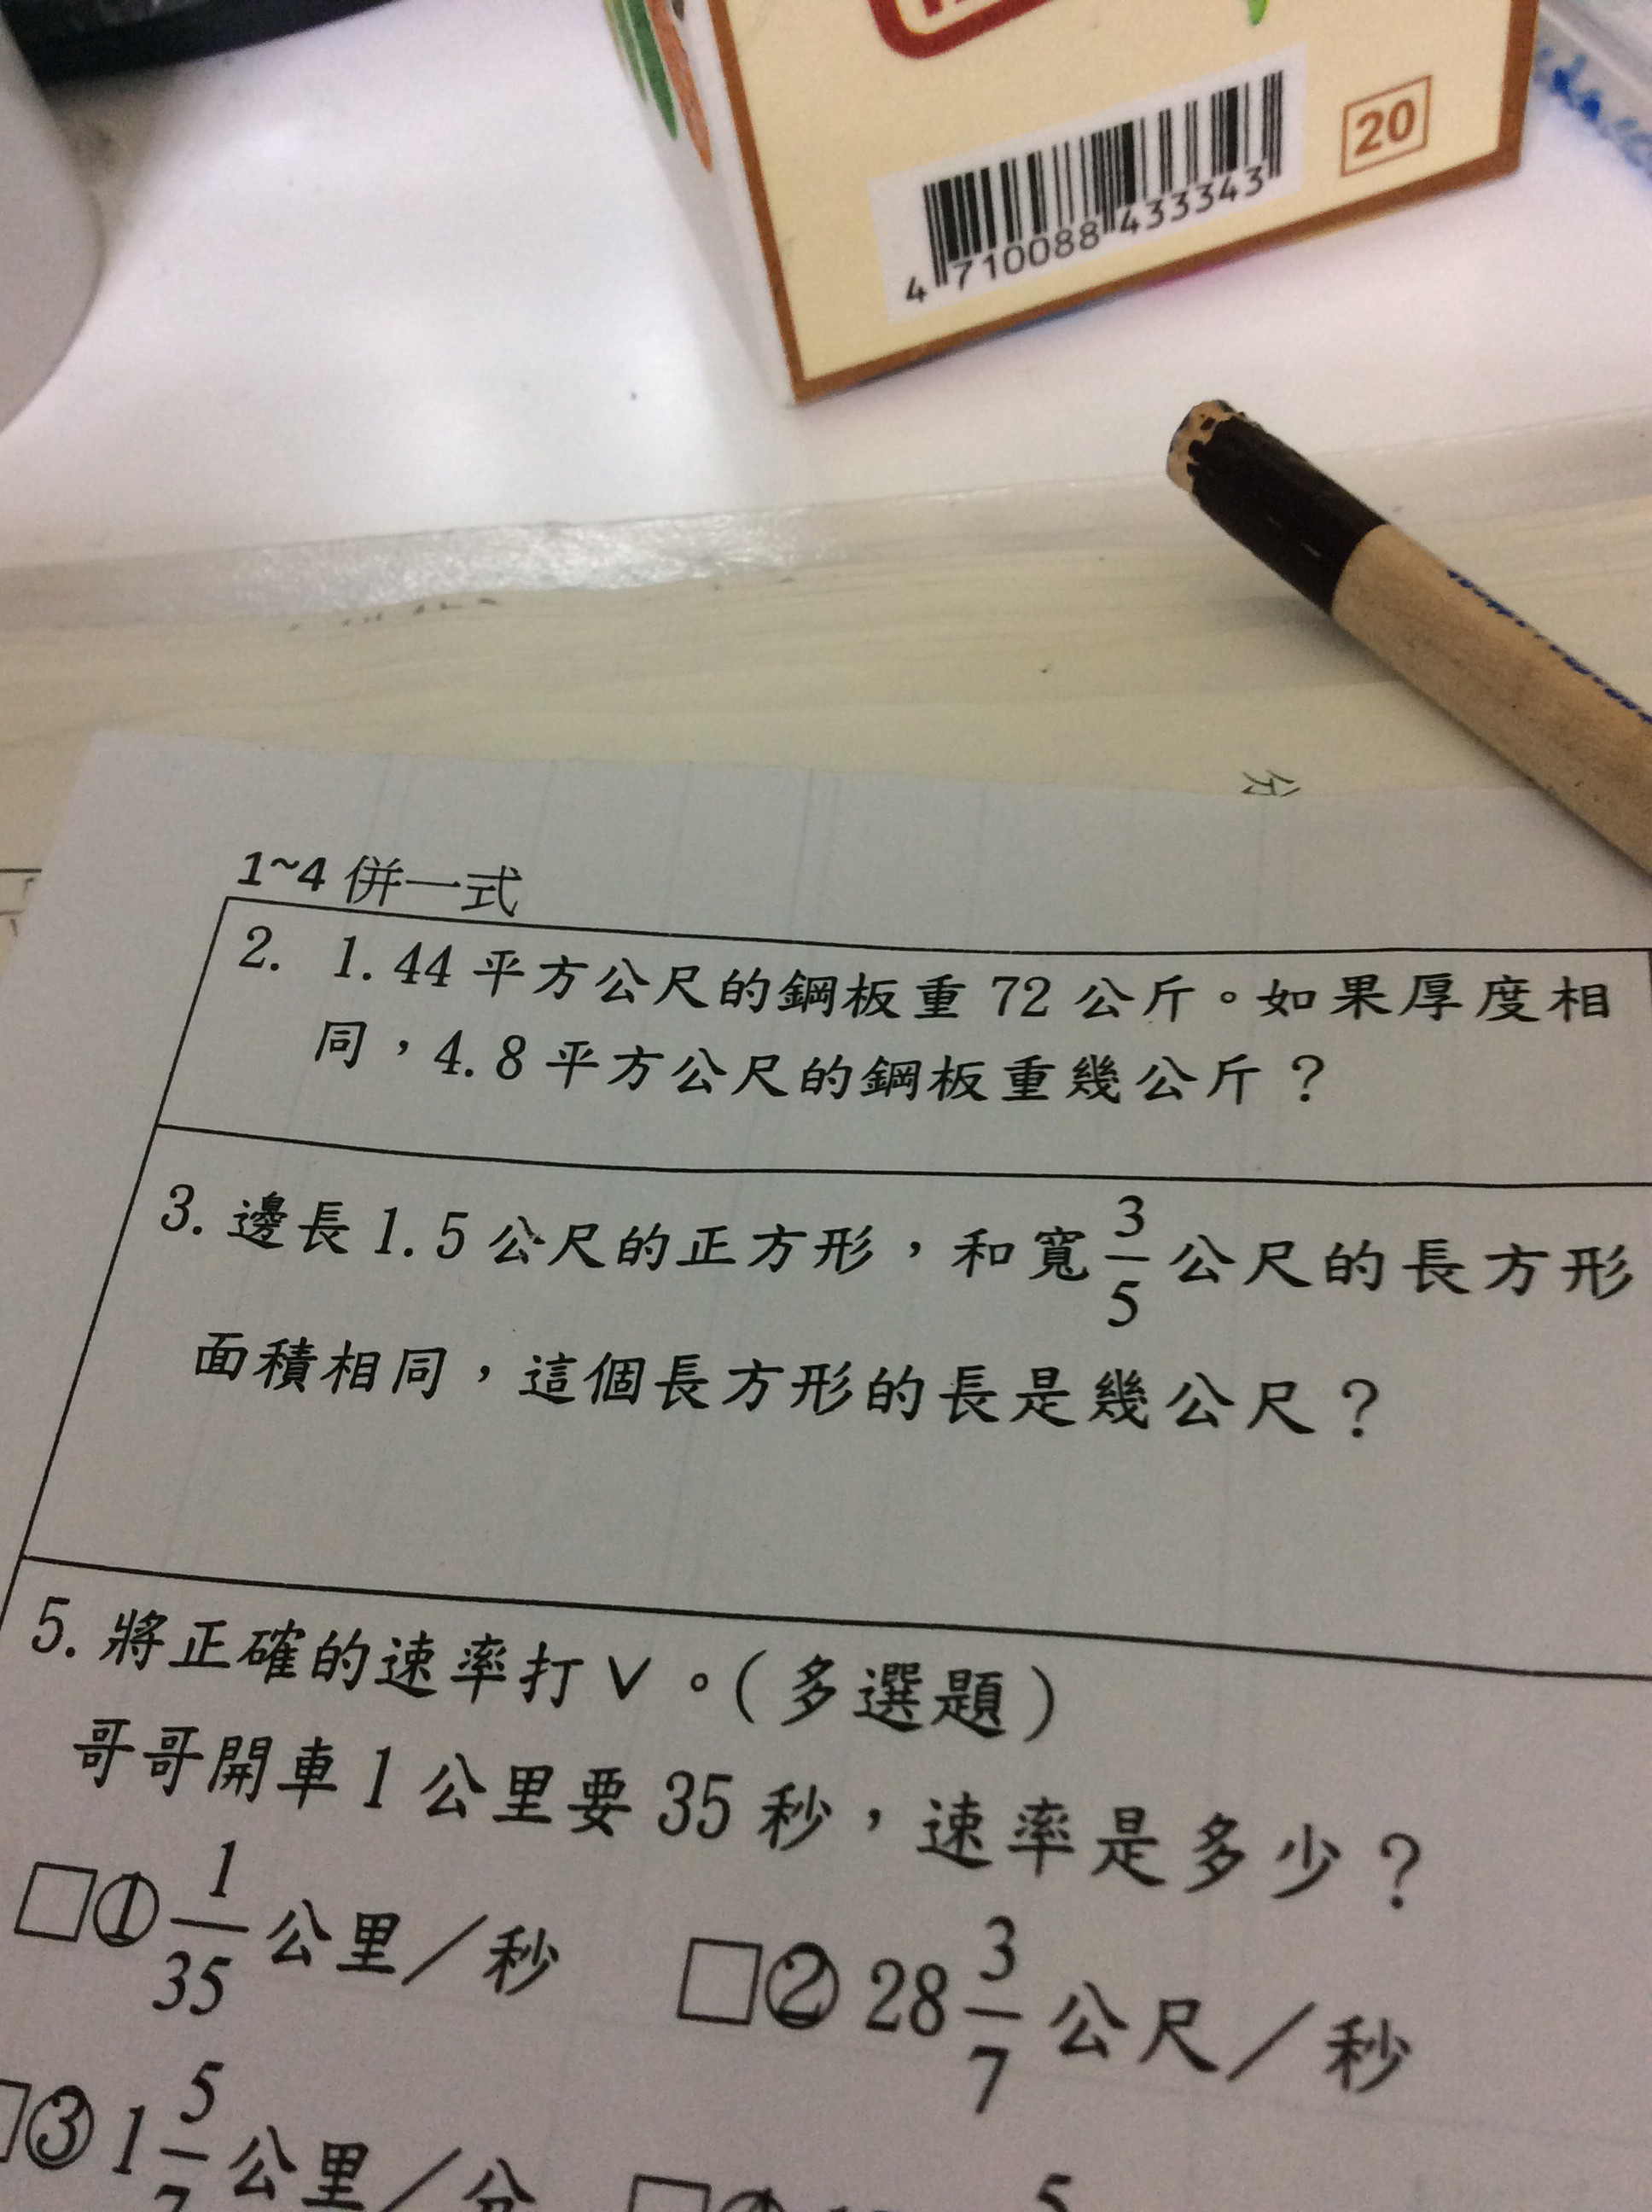 20
4 710088 433343
1~4 併一式
2. 1.44 平方公尺的鋼板重 72 公斤。如果厚度相
同，4.8 平方公尺的鋼板重幾公斤？
3. 邊長 1.5 公尺的正方形，和寬 3/5 公尺的長方形
面積相同，這個長方形的長是幾公尺？
5. 將正確的速率打∨。(多選題)
哥哥開車 1 公里要 35 秒，速率是多少？
□① 1/35 公里／秒 □② 28 3/7 公尺／秒
□③ 1 5/7 公里／分 □